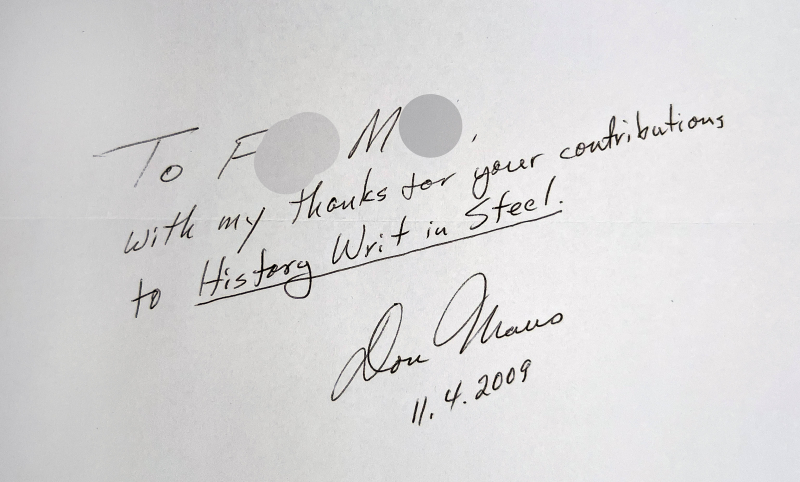 To F M ,
with my thanks for your contributions
to History Writ in Steel.
Don Maus
11.4.2009